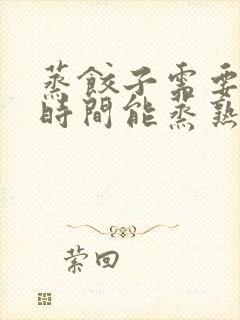 蒸餃子需要
時間能蒸熟
萦回